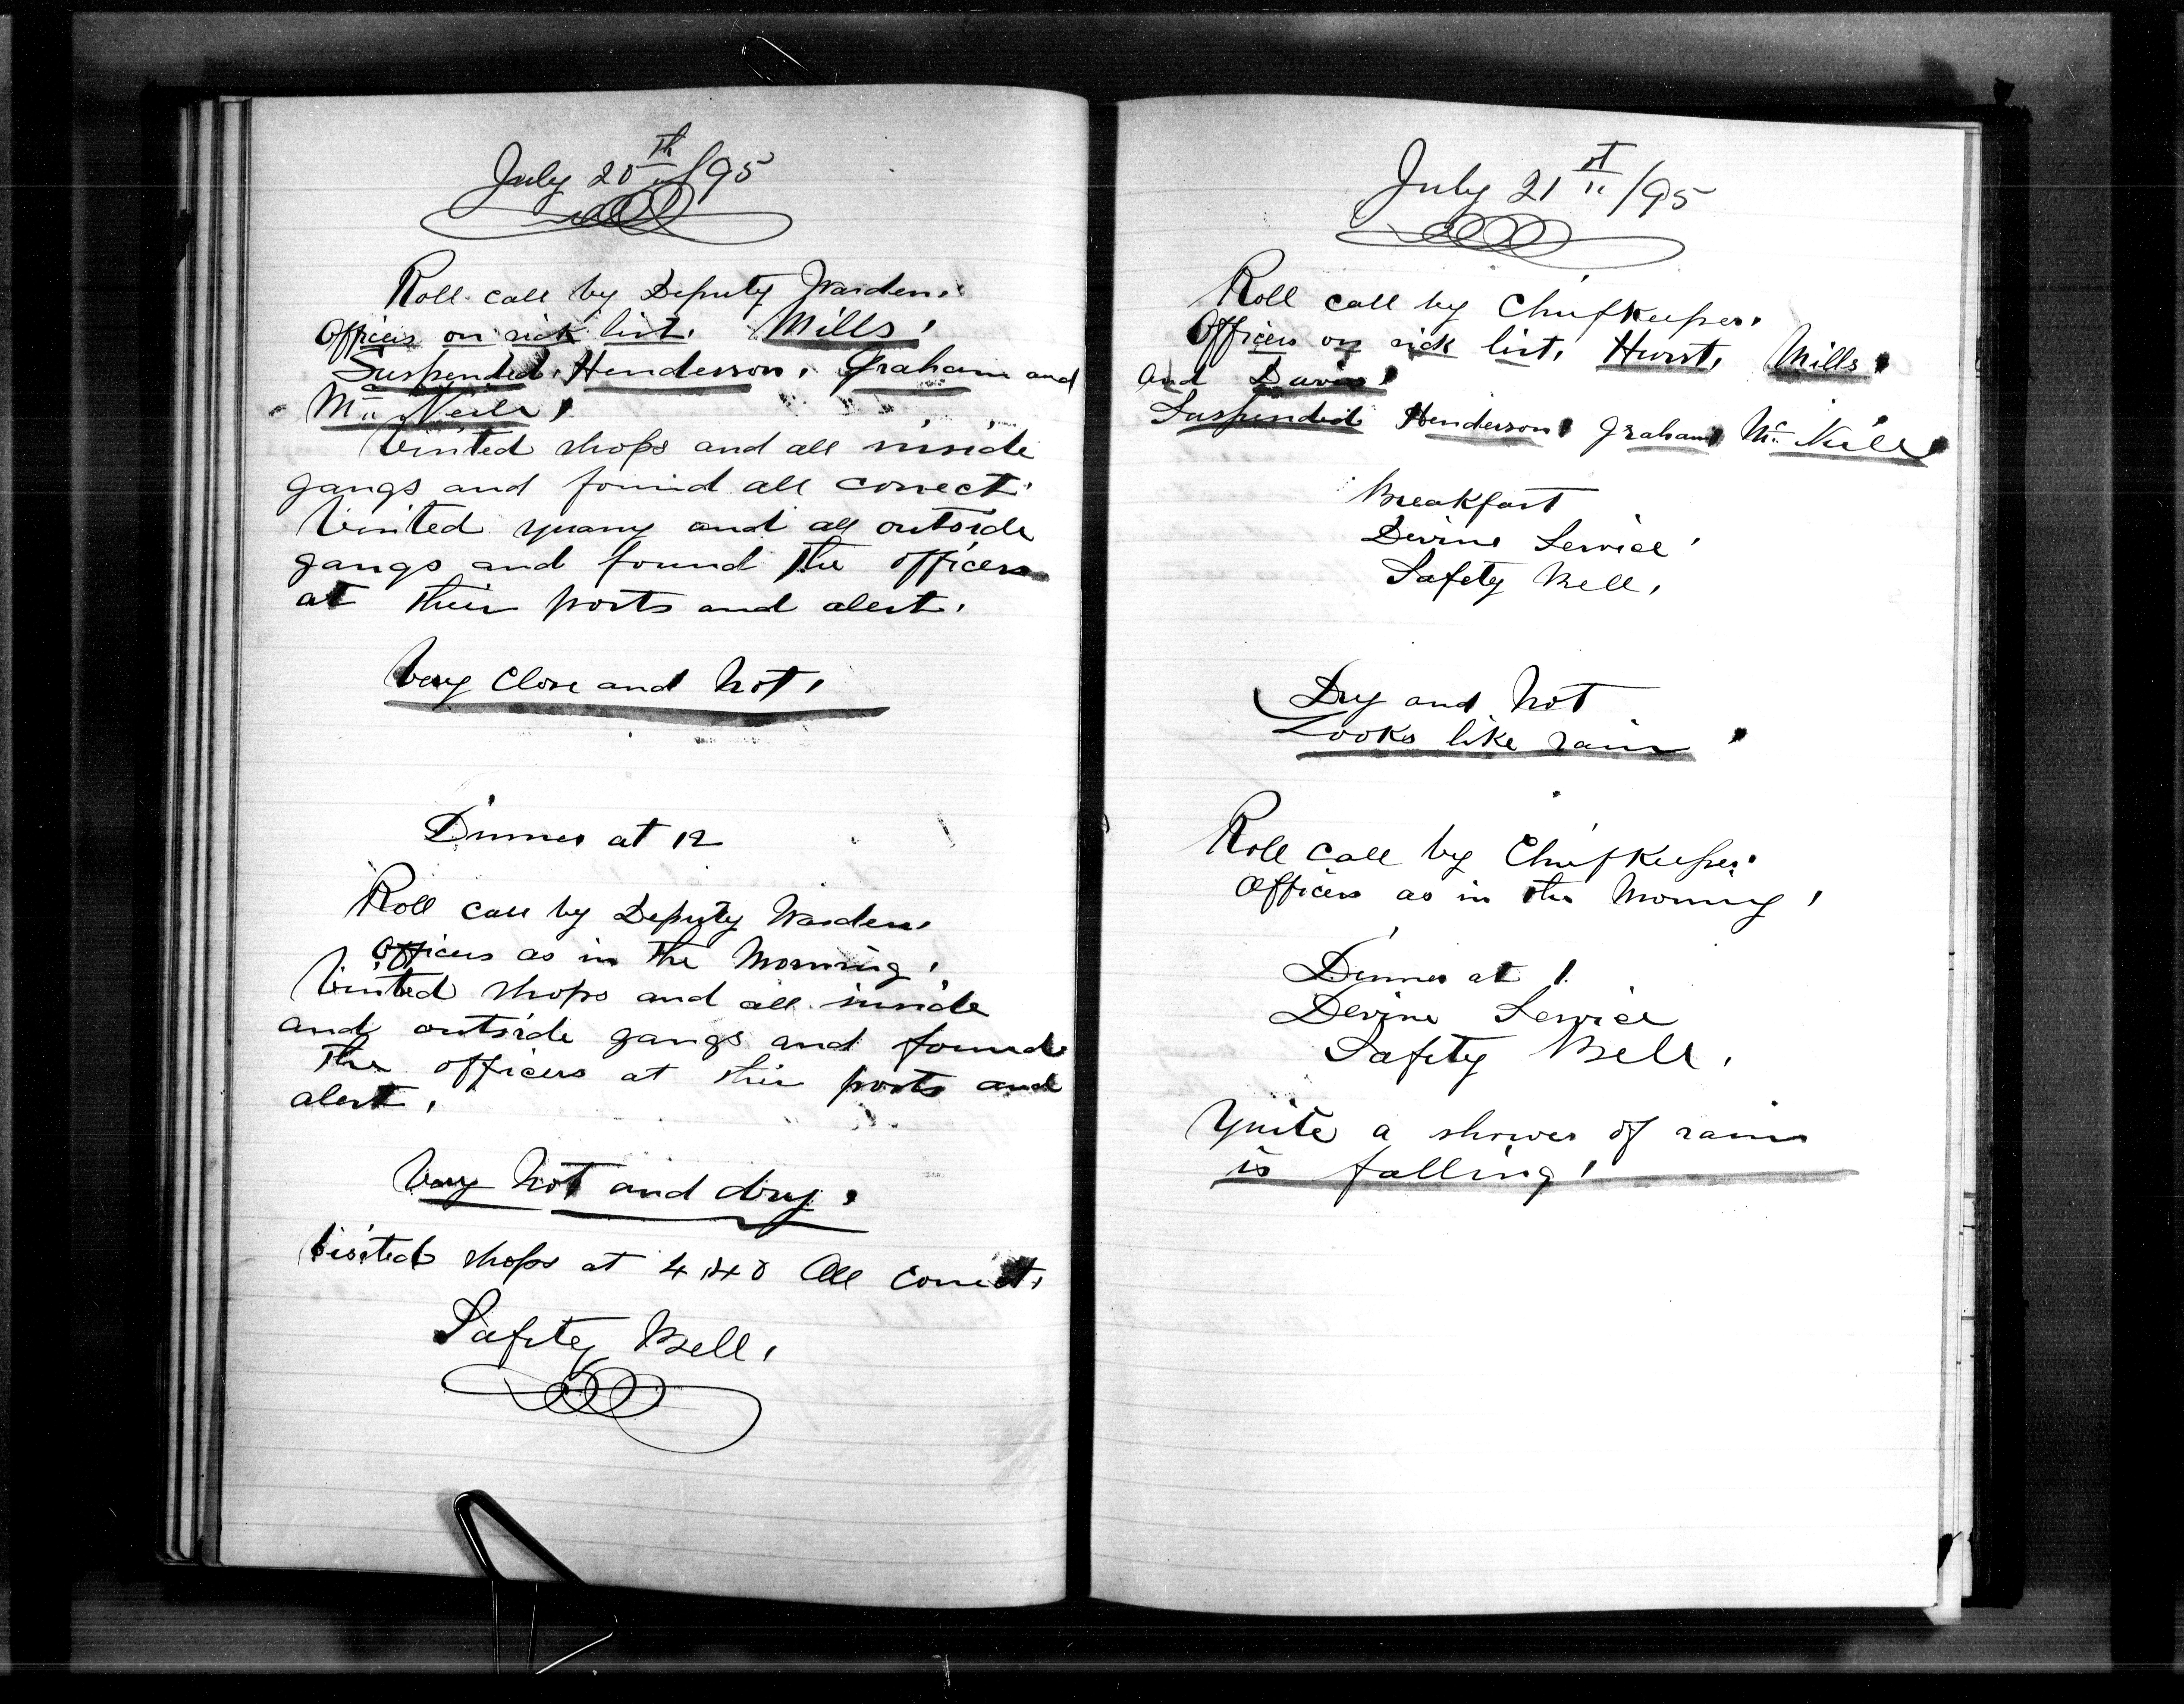 July 20th/95
Roll call by Deputy Warden.
Officers on sick list. Mills.
Suspended. Henderson. Graham and
Mc Neill.
Visited shops and all inside
gangs and found all correct.
Visited quarry and all outside
gangs and found the officers
at their posts and alert.
Very close and hot.
Dinner at 12
Roll call by Deputy Warden.
Officers as in the Morning.
Visited shops and all inside
and outside gangs and found
the officers at their posts and
alert.
Very hot and dry.
Visited shops at 4.40 All correct.
Safety Bell.
July 21st/95
Roll call by Chief Keeper.
Officers on sick list. Hurst. Mills.
and Davis.
Suspended Henderson Graham Mc Neill
Breakfast
Devine Service.
Safety Bell.
Dry and hot
Looks like rain.
Roll call by Chief Keeper.
Officers as in the Morning.
Dinner at 1.
Devine Service
Safety Bell.
Quite a shower of rain
is falling.